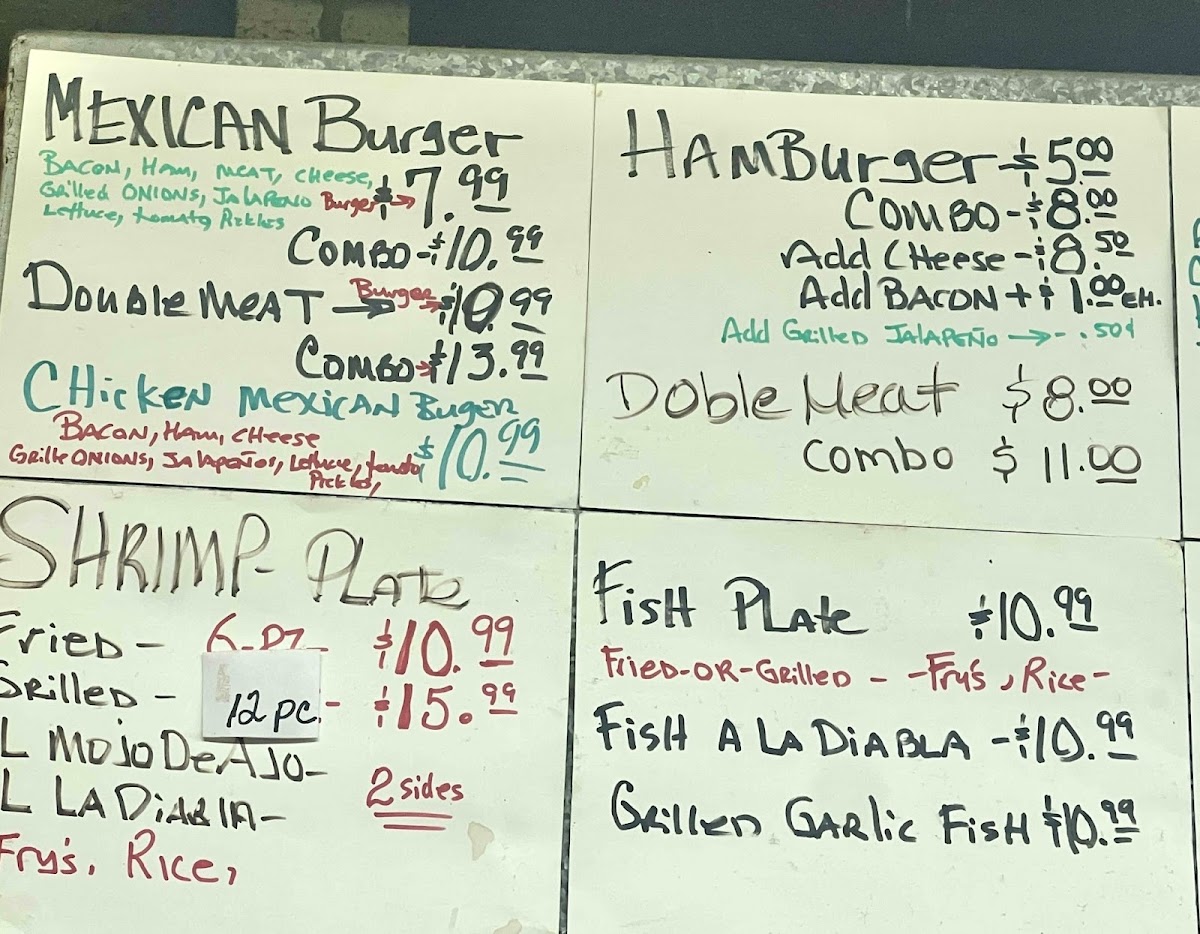 MEXICAN Burger
BACON, HAM, MEAT, CHEESE,
Grilled ONIONS, JALAPENO Burger → $7.99
Lettuce, tomato Pickles
COMBO - $10.99
Double MEAT → Burger → $10.99
COMBO → $13.99
CHicKEN MEXICAN Buger
BACON, HAM, CHEESE
Grille ONIONS, JALAPEÑOS, Lettuce, $10.99
Pickles,
HAMBurger - $5.00
COMBO - $8.00
Add CHeese - $8.50
Add BACON + $1.00 EH.
Add Grilled JALAPEÑO → - .50¢
Doble Meat $8.00
combo $11.00
SHRIMP - PLAte
Fried - 6-PZ - $10.99
Grilled - 12 pc. - $15.99
L MOJO De AJO -
L LA DiABlA - 2 sides
Fry's, Rice,
FisH PLAte $10.99
Fried-OR-Grilled - - Fry's, Rice -
FisH A LA DiABLA - $10.99
GrillED GARlic FisH $10.99